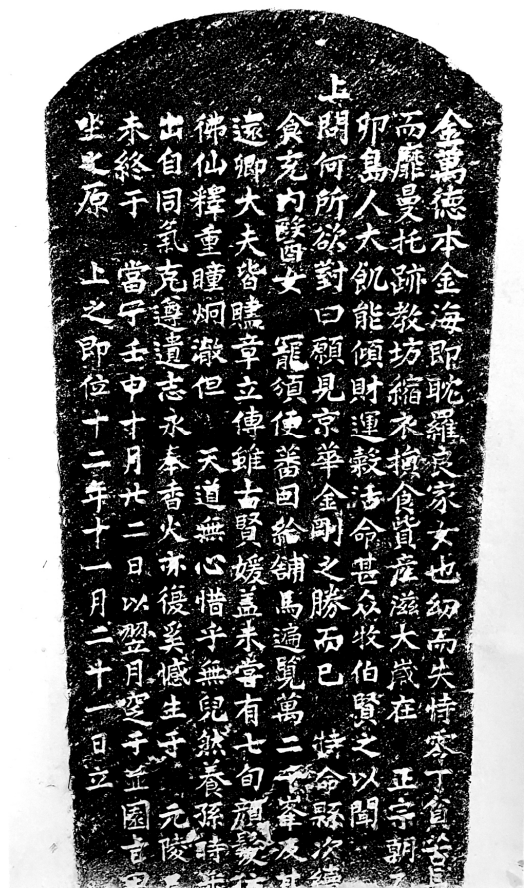 金萬德本金海即耽羅良家女也幼而失恃零丁貧苦長
而靡曼托跡教坊縮衣損食貲產滋大歲在 正宗朝
卯島人大飢能傾財運穀活命甚众牧伯賢之以聞
上問何所欲對曰願見京華金剛之勝而已 特命縣次續
食充內醫女 寵頒便蕃因給舖馬遍覽萬二千峯及其
還卿大夫皆贐章立傳雖古賢媛盖未嘗有七旬顔髮彷
彿仙釋重瞳炯澈但 天道無心惜乎無兒然養孫時
出自同氣克遵遺志永奉香火亦復奚憾生于 元陵
未終于 當宁壬申十月廿二日以翌月窆于並園旨
坐之原 上之即位十二年十一月二十一日立